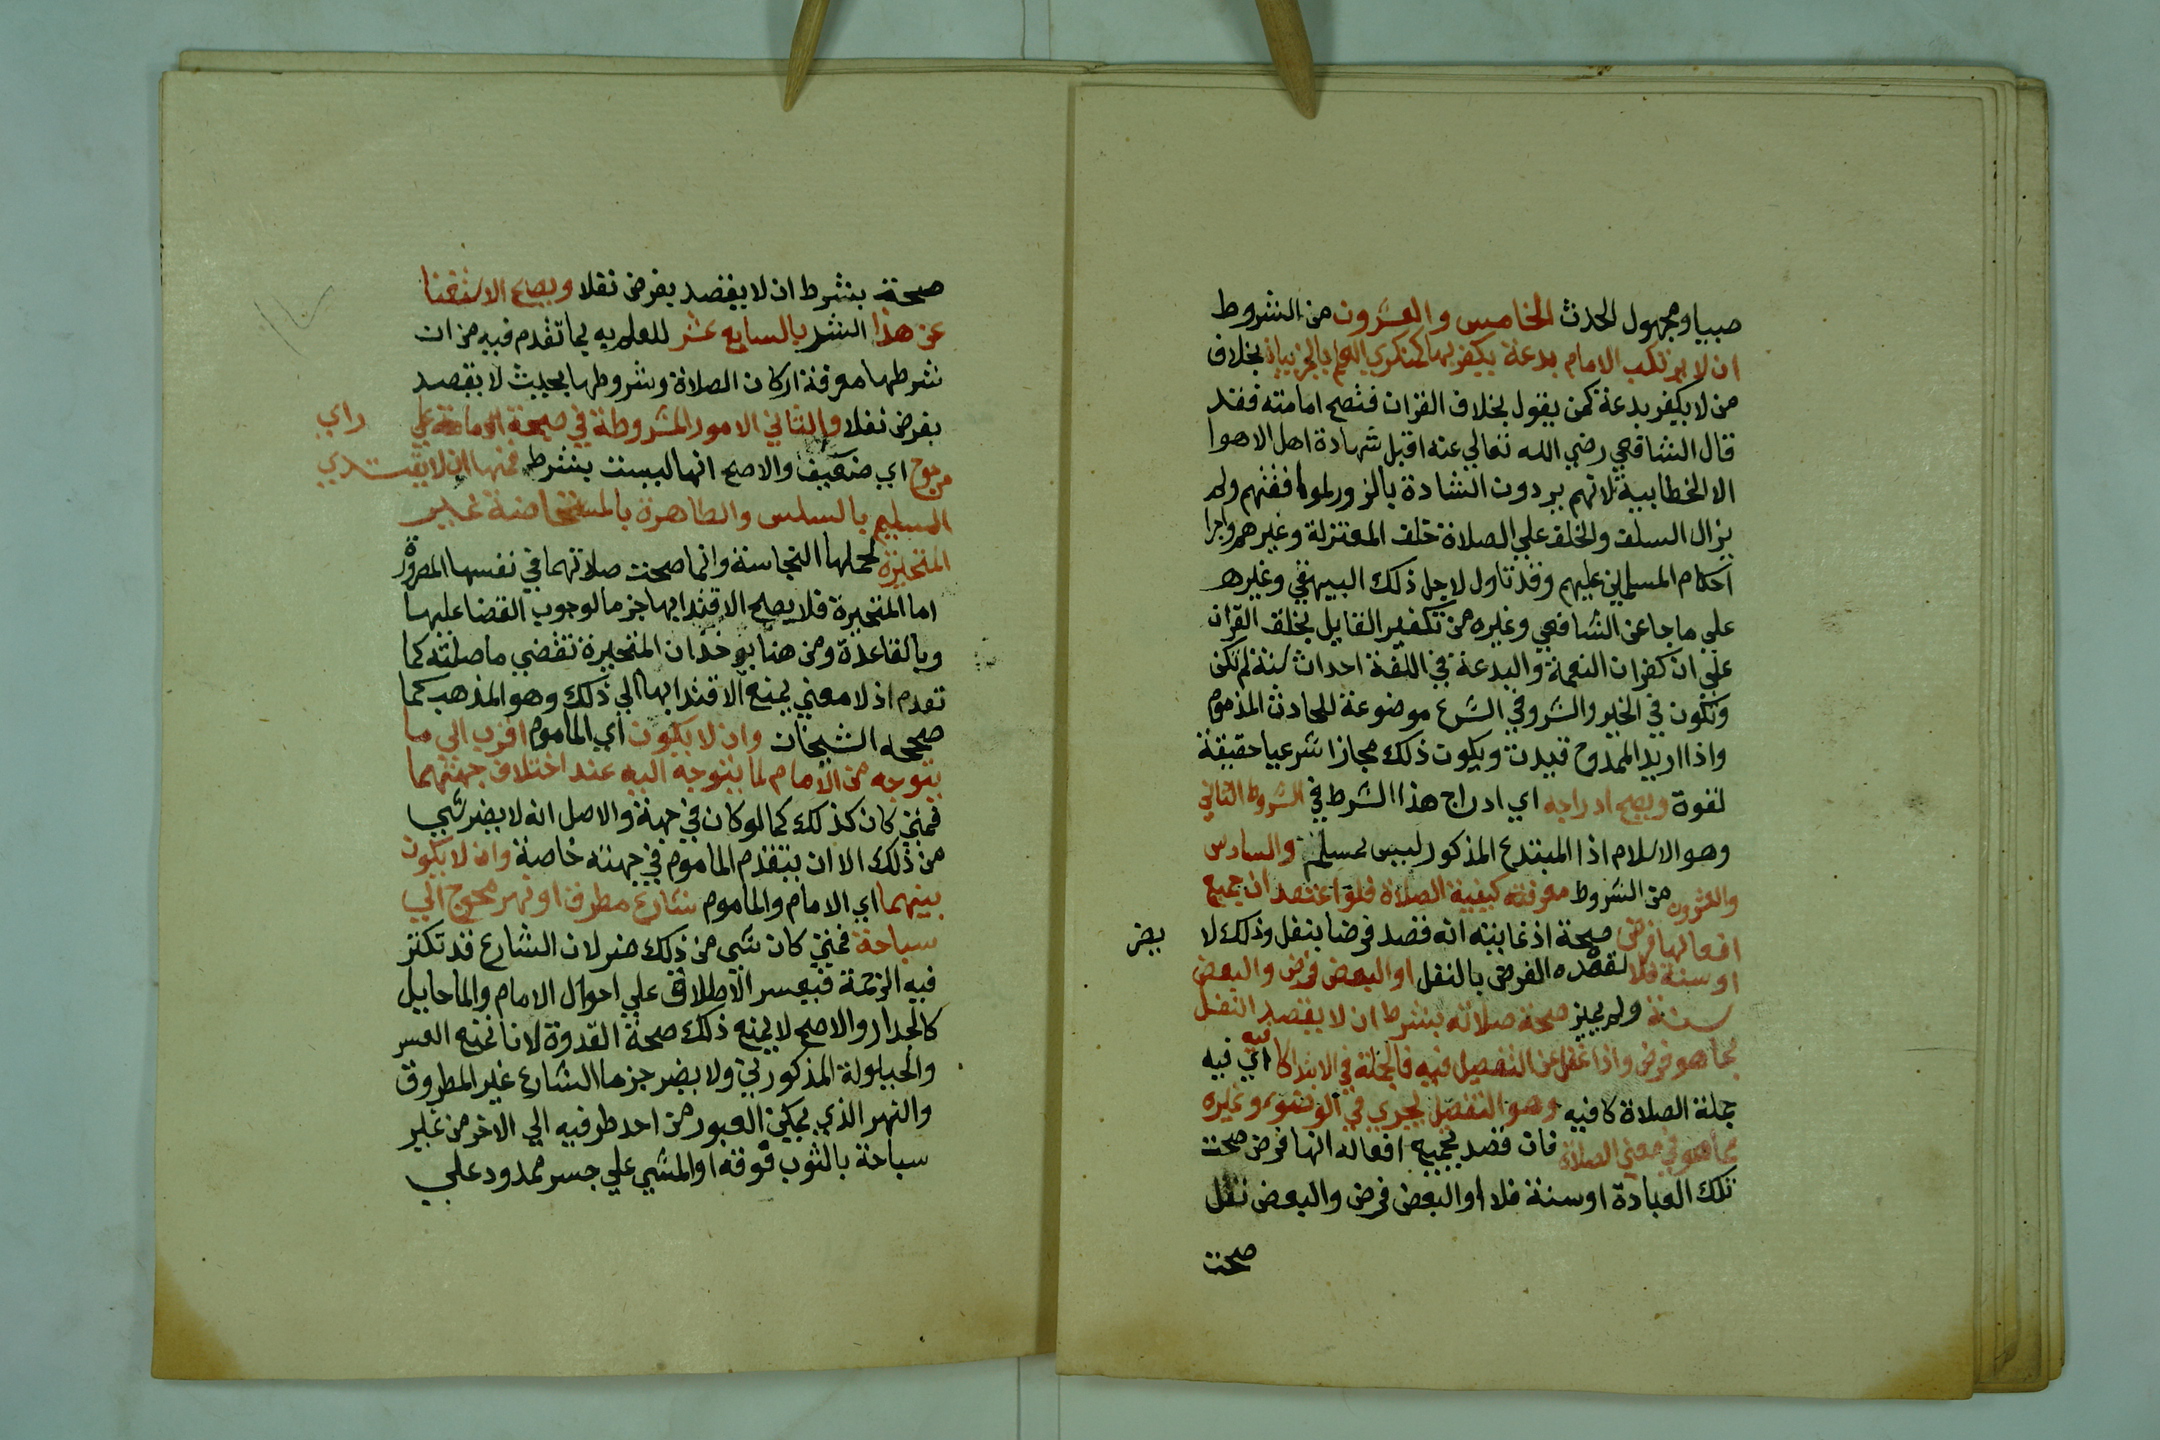 صبيا ومجهول الحدث الخامس والعشرون من الشروط
ان لا يرتكب الامام بدعة يكفر بها كمنكري العلم بالجزييات بخلاف
من لا يكفر ببدعة كمن يقول بخلاف القران فتصح امامته فقد
قال الشافعي رضي الله تعالي عنه اقبل شهادة اهل الاهوا
الا الخطابية لانهم يردون الشادة بالزور لموافقتهم ولم
يزال السلف والخلف علي الصلاة خلف المعتزلة وغيرهم واجرا
احكام المسلمين عليهم وقد تاول لاجل ذلك البيهقي وغيره
علي ما جا عن الشافعي وغيره من تكفير القايل بخلق القران
علي ان كفران النعمة والبدعة في اللغة احداث سنة لم تكن
وتكون في الخير والشر وفي الشرع موضوعة للحادث المذموم
واذا اريد الممدوح قيدت ويكون ذلك مجازا شرعيا حقيقة
لغوة ويصح ادراجه اي ادراج هذا الشرط في الشروط الثاني
وهو الاسلام اذا المبتدع المذكور ليس بمسلم والسادس
والعشرون من الشروط معرفته كيفية الصلاة فلو اعتقد ان جميع
افعالها فرض صحة اذ غايته انه قصد فرضا بنفل وذلك لا يضر
او سنة فلا لقصده الفرض بالنفل او البعض فرض والبعض
سنة ولم يميز صحة صلاته بشرط ان لا يقصد النفل
بما هو فرض واذا غفل عن التفصيل فيه فالجملة في الابتدا كافيه اي فيه
جملة الصلاة كافيه وهو التفصل يجري في الوضوء وغيره
مما هو في معني الصلاة فان قصد بجميع افعاله انها فرض صحت
تلك العبادة او سنة فلا او البعض فرض والبعض نفل
صحت
صحة بشرط ان لا يقصد بفرض نفلا ويصح الاستغنا
عن هذا الشر بالسابع عشر للعلم به بما تقدم فيه من ان
شرطها معرفة اركان الصلاة وشروطها بحيث لا يقصد
بفرض نفلا والثاني الامور المشروطة في صحة الامامة علي راي
مرجوح اي ضعيف والاصح انها ليست بشرط فمنها ان لا يقتدي
السليم بالسلس والطاهرة بالمستحاضة غير
المتحيرة لحملها النجاسة وانما صحت صلاتهما في نفسها للضرورة
اما المتحيرة فلا يصح الاقتدا بها جزما لوجوب القضا عليها
وبالقاعدة ومن هنا يوخذ ان المتحيرة تقضي ما صلته كما
تقدم اذ لا معني يمنع الاقتدا بها الي ذلك وهو المذهب كما
صححه الشيخان وان لا يكون اي الماموم اقرب الي ما
يتوجه من الامام لما يتوجه اليه عند اختلاف جهتهما
فمتي كان كذلك كما لو كان في جهة والاصل انه لا يضر شي
من ذلك الا ان يتقدم الماموم في جهته خاصة وان لا يكون
بينهما اي الامام والماموم شارع مطرق او نهر محوج الي
سباحة فمتي كان شي من ذلك ضر لان الشارع قد تكثر
فيه الزحمة فيعسر الاطلاق علي احوال الامام والما حايل
كالجدار والاصح لا يمنع ذلك صحة القدوة لانا نمنع العسر
والحيلولة المذكورتي ولا يضر جزما الشارع غير المطروق
والنهر الذي يمكن العبور من احد طرفيه الي الاخر من غير
سباحة بالثوب فوقه او المشي علي جسر ممدود علي